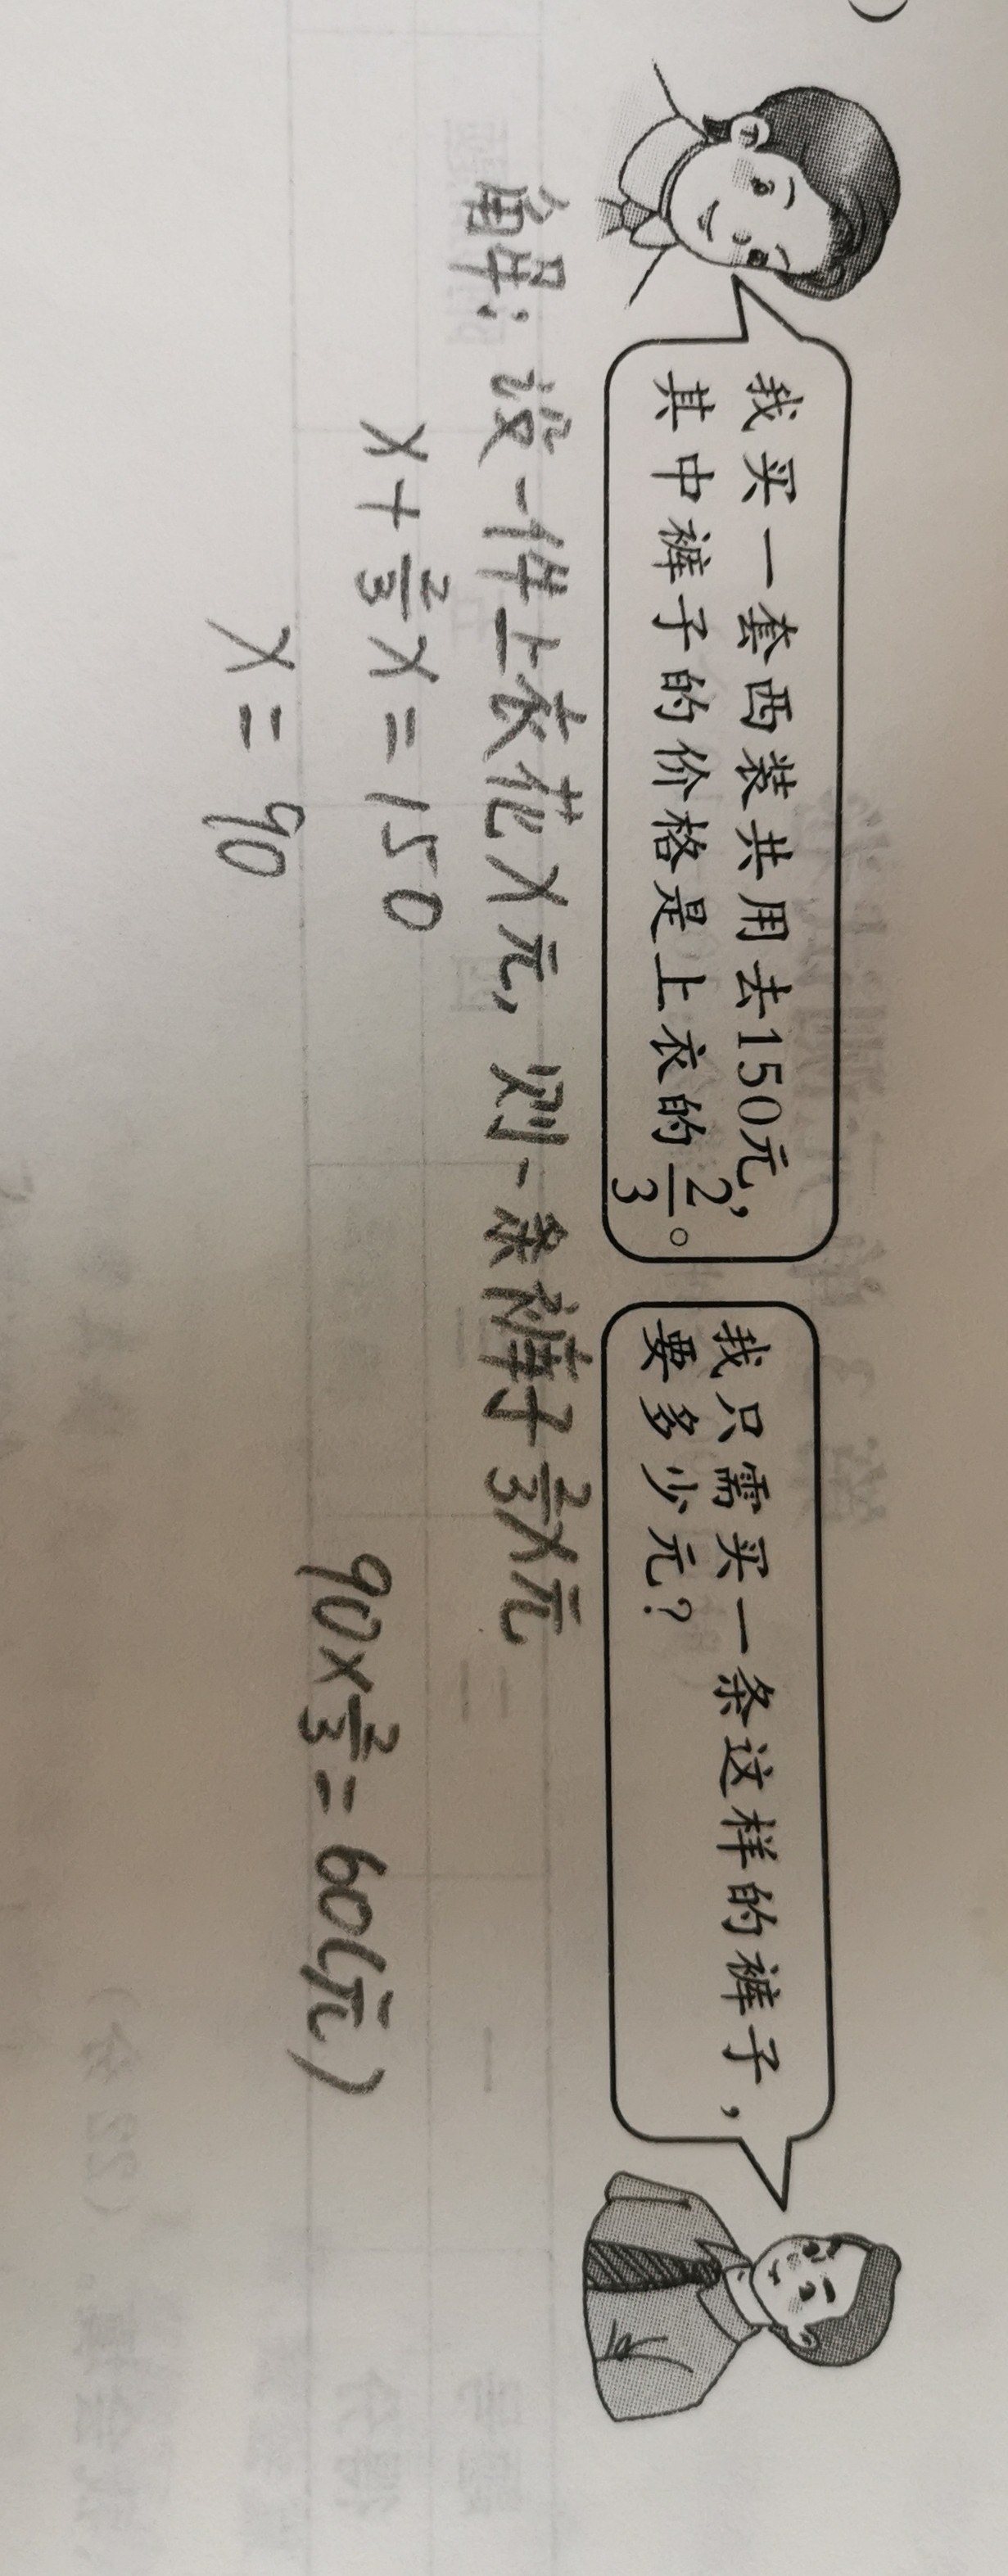 我买一套西装共用去150元，
其中裤子的价格是上衣的2/3。
我只需买一条这样的裤子，
要多少元？
解：设一件上衣花x元，则一条裤子2/3x元
x+2/3x=150
x=90
90×2/3=60(元)